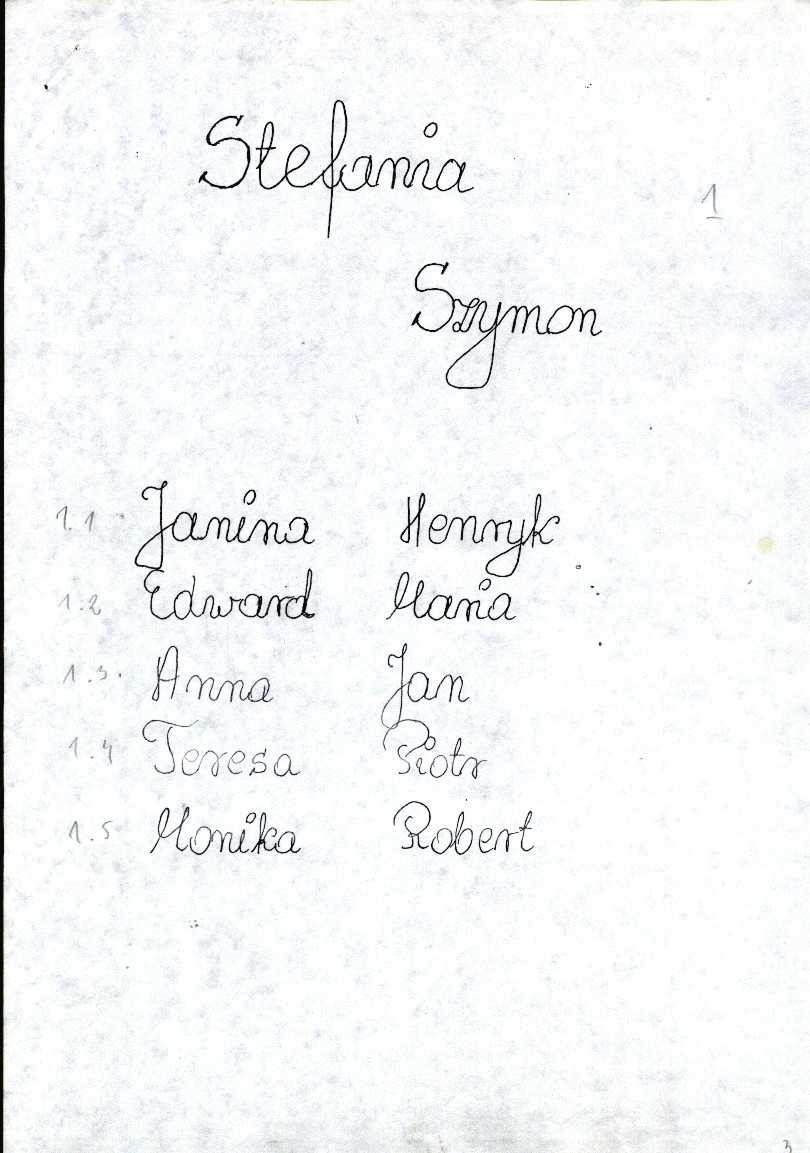 Stefania
1
Szymon
1.1 Janina Henryk
1.2 Edward Maria
1.3. Anna Jan
1.4 Teresa Piotr
1.5 Monika Robert
3